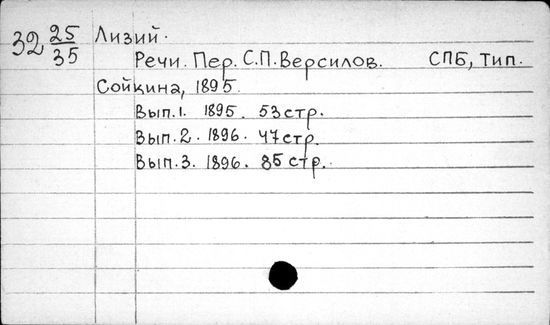 32 25/35 Лизий.
Речи. Пер. С.П. Версилов. СПБ, Тип.
Сойкина, 1895.
Вып.1. 1895. 53 стр.
Вып.2. 1896. 47 стр.
Вып.3. 1896. 85 стр.